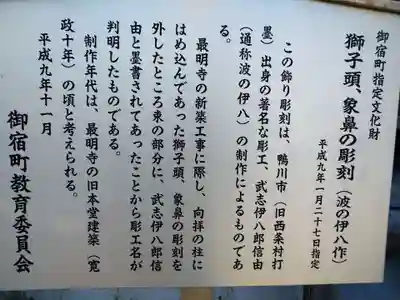 御宿町指定文化財
獅子頭、象鼻の彫刻（波の伊八作）
平成九年一月二十七日指定
この飾り彫刻は、鴨川市（旧西条村打
墨）出身の著名な彫工、武志伊八郎信由
（通称波の伊八）の制作によるものであ
る。
最明寺の新築工事に際し、向拝の柱に
はめ込んであった獅子頭、象鼻の彫刻を
外したところ束の部分に、武志伊八郎信
由と墨書されてあったことから彫工名が
判明したものである。
制作年代は、最明寺の旧本堂建築（寛
政十年）の頃と考えられる。
平成九年十一月
御宿町教育委員会